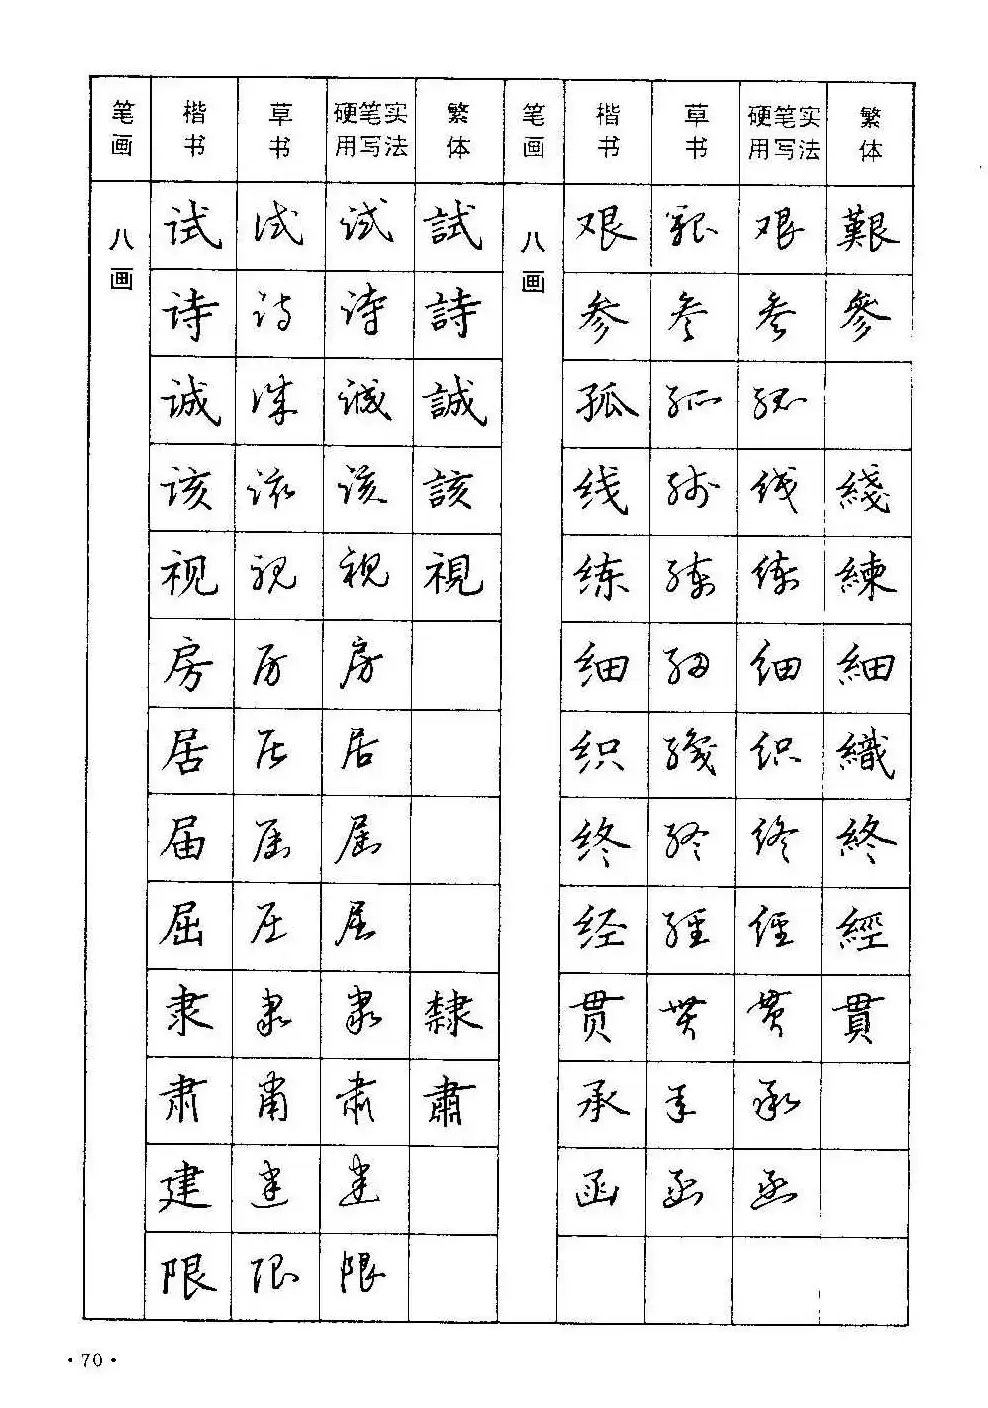 笔画 楷书 草书 硬笔实用写法 繁体 笔画 楷书 草书 硬笔实用写法 繁体
八画 试 试 试 試 八画 艰 艰 艰 艱
诗 诗 诗 詩 参 参 参 參
诚 诚 诚 誠 孤 孤 孤
该 该 该 該 线 线 线 綫
视 视 视 視 练 练 练 練
房 房 房 细 细 细 細
居 居 居 织 织 织 織
届 届 届 终 终 终 終
屈 屈 屈 经 经 经 經
隶 隶 隶 隸 贯 贯 贯 貫
肃 肃 肃 肅 承 承 承
建 建 建 函 函 函
限 限 限
·70·